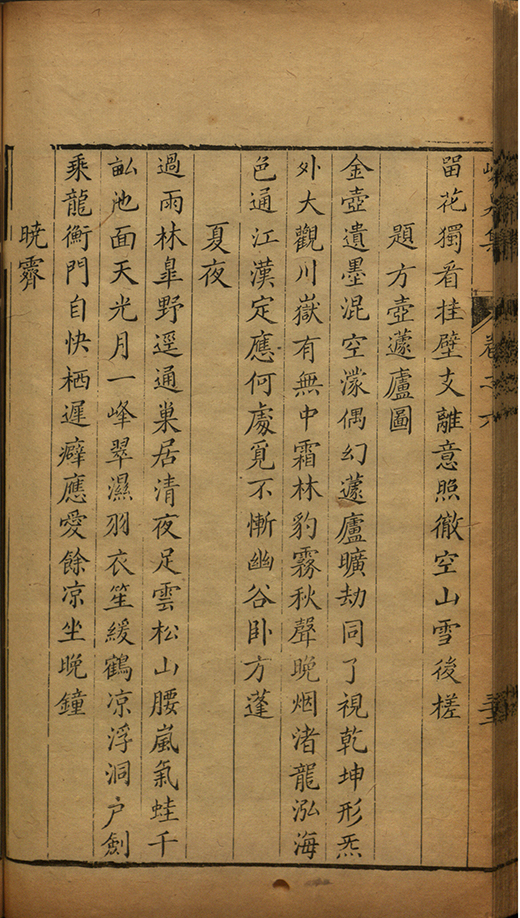 卷之六
留花獨看挂壁支離意照徹空山雪後槎
題方壺蘧廬圖
金壺遺墨混空濛偶幻蘧廬曠劫同了視乾坤形炁
外大觀川嶽有無中霜林豹霧秋聲晚烟渚龍泓海
色通江漢定應何處覓不慚幽谷卧方蓬
夏夜
過雨林皐野逕通巢居清夜足雲松山腰嵐氣蛙千
畝池面天光月一峰翠濕羽衣笙緩鶴凉浮洞户劍
乘龍衡門自快栖遲癖應愛餘凉坐晚鐘
曉霽